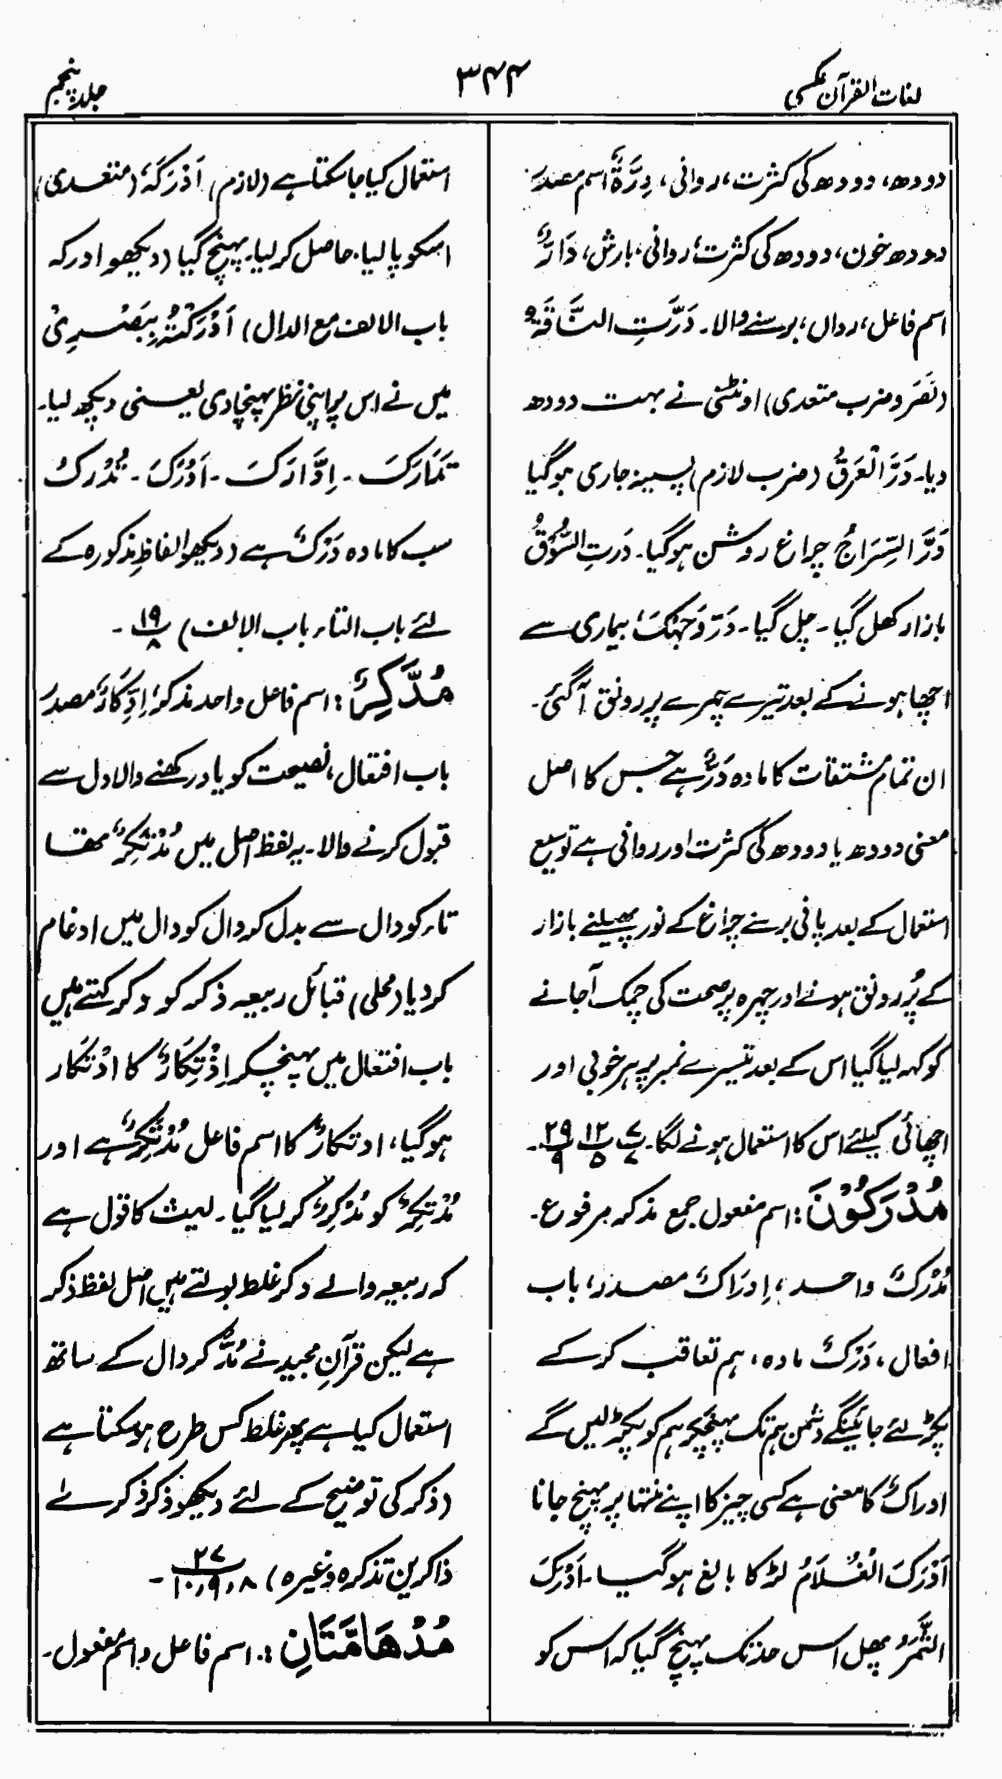 لغات القرآن عکسی
۳۴۴
جلد پنجم
دودھ، دودھ کی کثرت، روانی، دِرَّۃٌ اسم مصدر
دودھ خون، دودھ کی کثرت، روانی، بارش، دَارٌّ
اسم فاعل، رواں، برسنے والا۔ دَرَّتِ النَّاقَۃُ
(نَصَرَ و ضرب متعدی) اونٹنی نے بہت دودھ
دیا۔ دَرَّ الْعَرَقُ (ضرب لازم) پسینہ جاری ہوگیا
دَرَّ السِّرَاجُ چراغ روشن ہوگیا۔ دَرتِ السُّوْقُ
بازار کھل گیا۔ چل گیا۔ دَرَّ وَجْہُکَ، بیماری سے
اچھا ہونے کے بعد تیرے چہرے پر رونق آگئی۔
ان تمام مشتقات کا مادہ دَرٌّ ہے جس کا اصل
معنی دودھ یا دودھ کی کثرت اور روانی ہے توسیع
استعمال کے بعد پانی برسنے چراغ کے نور پھیلنے بازار
کے پُر رونق ہونے اور چہرہ پر صحت کی چمک آجانے
کو کہہ لیا گیا اس کے بعد تیسرے نمبر پر ہر خوبی اور
اچھائی کیلئے اس کا استعمال ہونے لگا۔ ۷/۷ ۱۲/۵ ۲۹/۹۔
مُدْرَکُوْنَ: اسم مفعول جمع مذکر مرفوع۔
مُدْرَکٌ واحد، اِدْرَاکٌ مصدر، باب
افعال، دَرْکٌ مادہ، ہم تعاقب کر کے
پکڑ لئے جائینگے دشمن ہم تک پہنچکر ہم کو پکڑ لیں گے
ادراکٌ کا معنی ہے کسی چیز کا اپنے منتہا پر پہنچ جانا
اَدْرَکَ الْغُلَامُ لڑکا بالغ ہوگیا۔ اَدْرَکَ
الثَّمَرُ پھل اس حد تک پہنچ گیا کہ اس کو
استعمال کیا جاسکتا ہے (لازم) اَدْرَکَہٗ (متعدی)
اسکو پالیا۔ حاصل کرلیا۔ پہنچ گیا (دیکھو ادرکہ
باب الالف مع الدال) اَدْرَکْتُہٗ بِبَصَرِیْ
میں نے اس پر اپنی نظر پہنچادی یعنی دیکھ لیا۔
تَدَارَکَ۔ اِدَّارَکَ۔ اَدْرَکَ۔ تُدْرِکُ
سب کا مادہ دَرْکٌ ہے (دیکھو الفاظِ مذکورہ کے
لئے باب التاء باب الالف) ۱۹/۸۔
مُدَّکِرٌ: اسم فاعل واحد مذکر، اِدِّکَارٌ، مصدر
باب افتعال، نصیحت کو یاد رکھنے والا دل سے
قبول کرنے والا۔ یہ لفظ اصل میں مُذْتَکِرٌ تھا
تاء کو دال سے بدل کر دال کو دال میں ادغام
کردیا (محلی) قبائل ربیعہ ذکر کو دکر کہتے ہیں
باب افتعال میں پہنچکر اِذْتِکَارٌ کا ادْتکار
ہوگیا، ادتکارٌ کا اسم فاعل مُدْتَکِرٌ ہے اور
مُدْتَکِرٌ کو مُدَّکِرٌ کرلیا گیا۔ لیث کا قول ہے
کہ ربیعہ والے دکر غلط بولتے ہیں اصل لفظ ذکر
ہے لیکن قرآنِ مجید نے مُدَّکر دال کے ساتھ
استعمال کیا ہے پھر غلط کس طرح ہوسکتا ہے
(ذکر کی توضیح کے لئے دیکھو ذکر ذکرے
ذاکرین تذکرہ وغیرہ) ۲۷/۸،۹،۱۰۔
مُدْھَامَّتَانِ: اسم فاعل و اسم مفعول۔